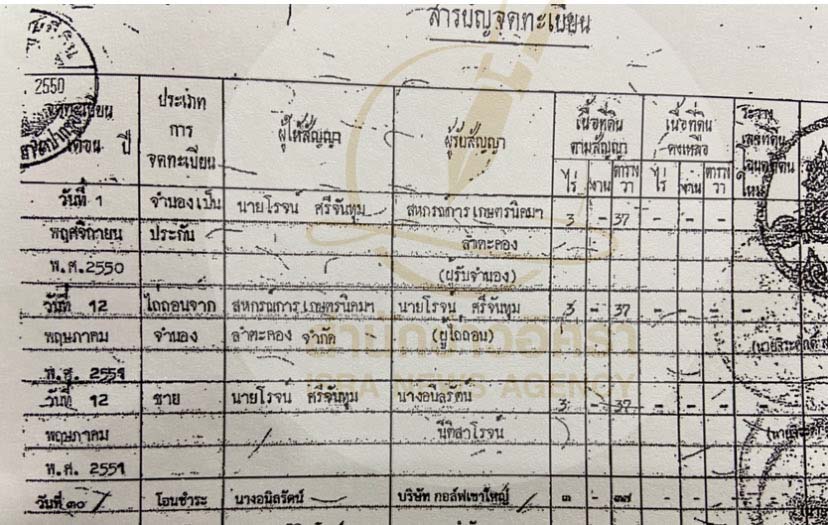 สารบัญจดทะเบียน
2550
จดทะเบียน
เดือน ปี
ประเภท
การ
จดทะเบียน
ผู้ให้สัญญา
ผู้รับสัญญา
เนื้อที่ดิน
ตามสัญญา
ไร่ งาน ตาราง
วา
เนื้อที่ดิน
คงเหลือ
ไร่ งาน ตาราง
วา
ระวาง
เลขที่ดิน
โฉนดที่ดิน
ใหม่
วันที่ 1 จำนองเป็น นายโรจน์ ศรีจันทุม สหกรณ์การเกษตรนิคมฯ 3 - 37 - - - -
พฤศจิกายน ประกัน ลำตะคอง
พ.ศ.2550 (ผู้รับจำนอง)
วันที่ 12 ไถ่ถอนจาก สหกรณ์การเกษตรนิคมฯ นายโรจน์ ศรีจันทุม 3 - 37 - - - -
พฤษภาคม จำนอง ลำตะคอง จำกัด (ผู้ไถ่ถอน)
พ.ศ. 2551
สำนักข่าวอิศรา
ISRA NEWS AGENCY
วันที่ 12 ขาย นายโรจน์ ศรีจันทุม นางอนิลรัตน์ 3 - 37 - - - -
พฤษภาคม นิติสาโรจน์
พ.ศ. 2551
วันที่ ๓๐ โอนชำระ นางอนิลรัตน์ บริษัท กอล์ฟเขาใหญ่ ๓ - ๓๗ - - - -